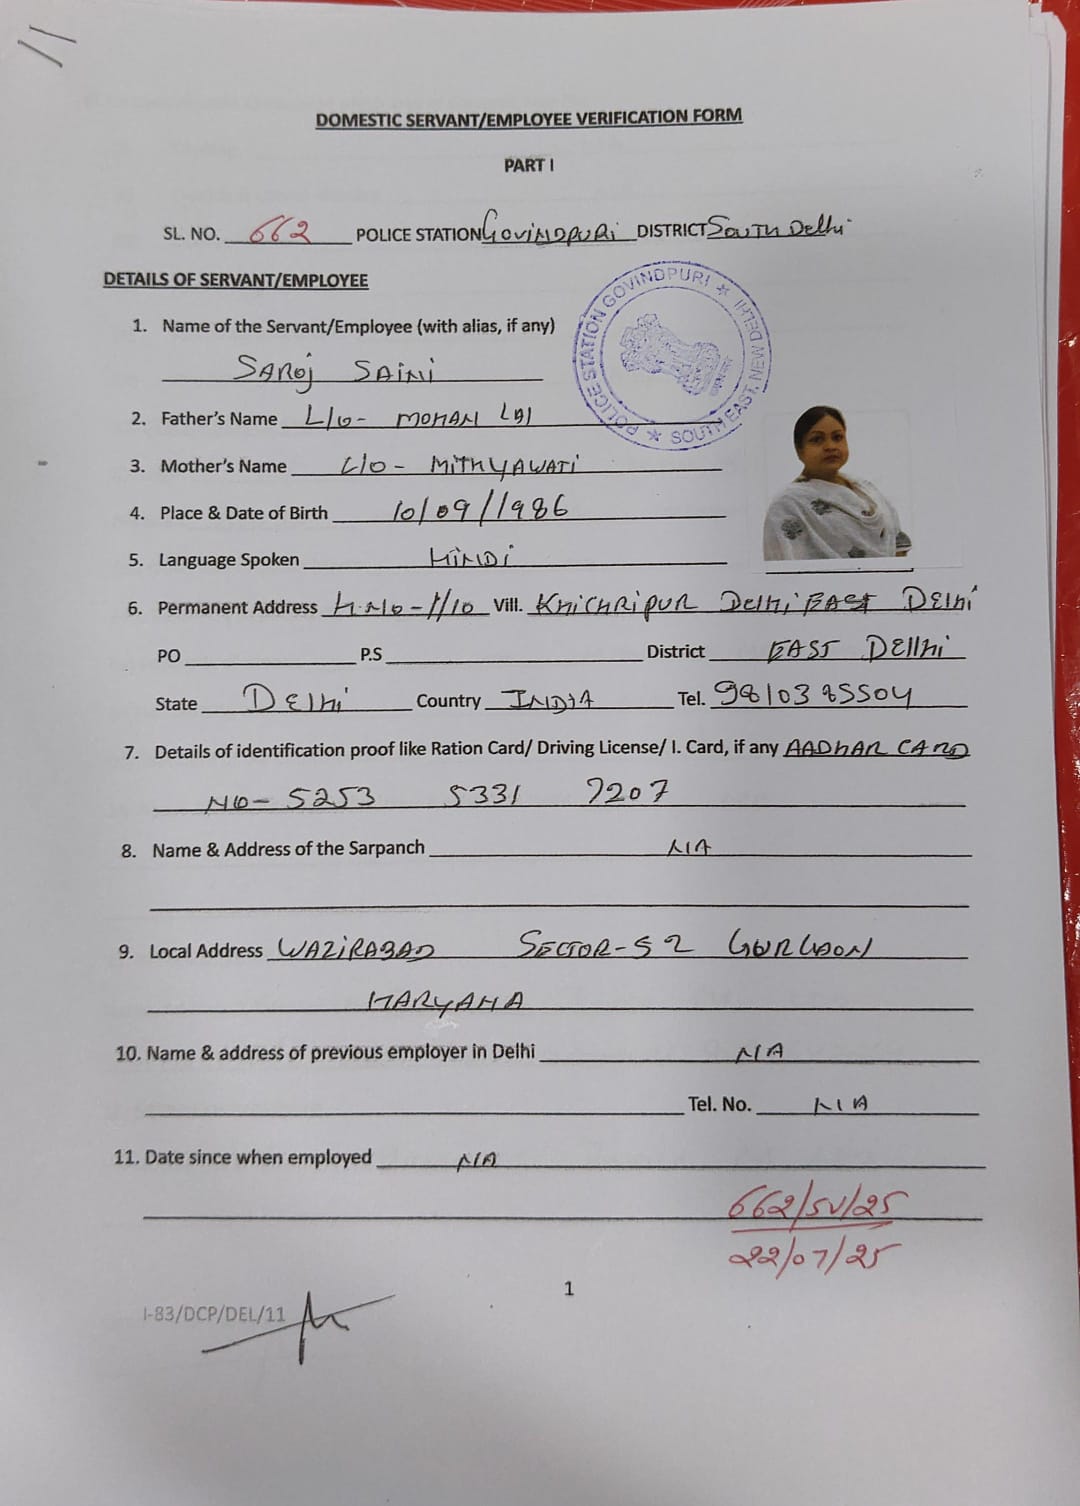 DOMESTIC SERVANT/EMPLOYEE VERIFICATION FORM
PART I
SL. NO. 662 POLICE STATION GOVINDPURI DISTRICT SOUTH Delhi
DETAILS OF SERVANT/EMPLOYEE
POLICE STATION GOVINDPURI ★ SOUTH EAST, NEW DELHI ★
1. Name of the Servant/Employee (with alias, if any)
SAROJ SAINI
2. Father's Name L/O- MOHAN LAl
3. Mother's Name L/O - MITHYAWATI
4. Place & Date of Birth 10/09/1986
5. Language Spoken HINDI
6. Permanent Address H.NO-1/10 Vill. KHICHRIPUR DElhi EAST DElhi
PO P.S District EAST DEllhi
State DElhi Country INDIA Tel. 9810385504
7. Details of identification proof like Ration Card/ Driving License/ I. Card, if any AADHAR CARD
NO- 5253 5331 7207
8. Name & Address of the Sarpanch N/A
9. Local Address WAZIRABAD SECTOR-52 GURGAON
HARYANA
10. Name & address of previous employer in Delhi N/A
Tel. No. N/A
11. Date since when employed N/A
662/SV/25
22/07/25
1
I-83/DCP/DEL/11